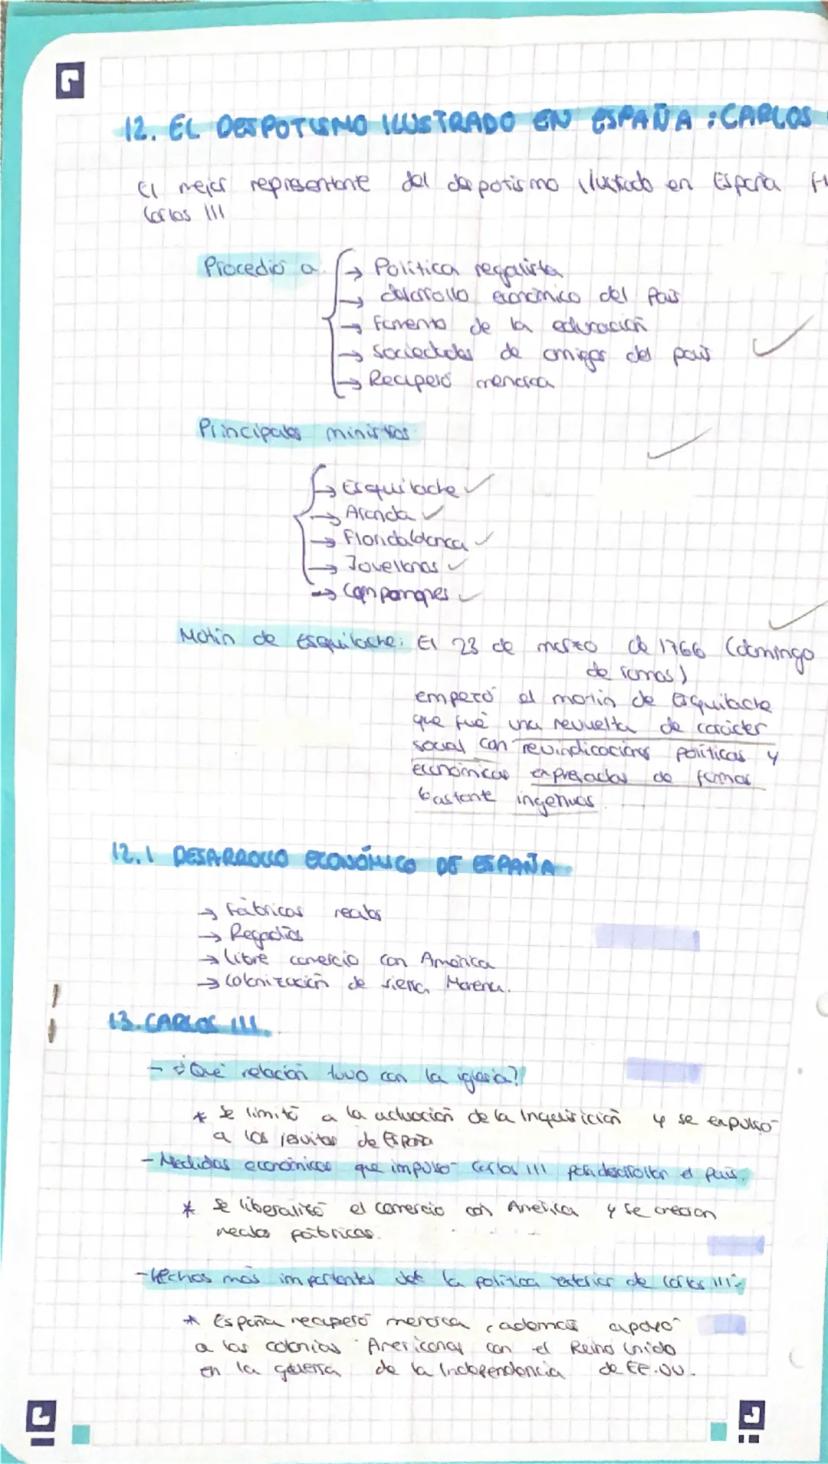 12. EL DESPOTISMO ILUSTRADO EN ESPAÑA : CARLOS
El mejor representante del despotismo ilustrado en España
Carlos III
Procedió a
→ Política regalista
→ desarrollo económico del País
→ Fomento de la educación
→ Sociedades de amigos del país
→ Recuperó menorca
Principales ministros
→ Esquilache ✓
→ Aranda ✓
→ Floridablanca ✓
→ Jovellanos ✓
→ Campomanes ✓
Motin de Esquilache: El 23 de marzo de 1766 (domingo
de ramos)
empezó el motin de Esquilache
que fué una revuelta de carácter
social con reivindicacions políticas y
económicas expresadas de formas
bastante ingenuas
12.1 DESARROLLO ECONÓMICO DE ESPAÑA
→ Fábricas reales
→ Regadíos
→ Libre comercio con América
→ Colonización de sierra Morena.
13. CARLOS III.
- ¿Qué relación tuvo con la iglesia?
* Se limitó a la actuación de la Inquisición y se expulsó
a los jesuitas de España
- Medidas económicas que impulsó Carlos III para desarrollar el país.
* Se liberalizó el comercio con América y se crearon
reales fábricas.
- Hechos más importantes de la política exterior de Carlos III
* España recuperó menorca, ademas apoyó
a las colonias Americanas con el Reino Unido
en la guerra de la Independencia de EE.UU.